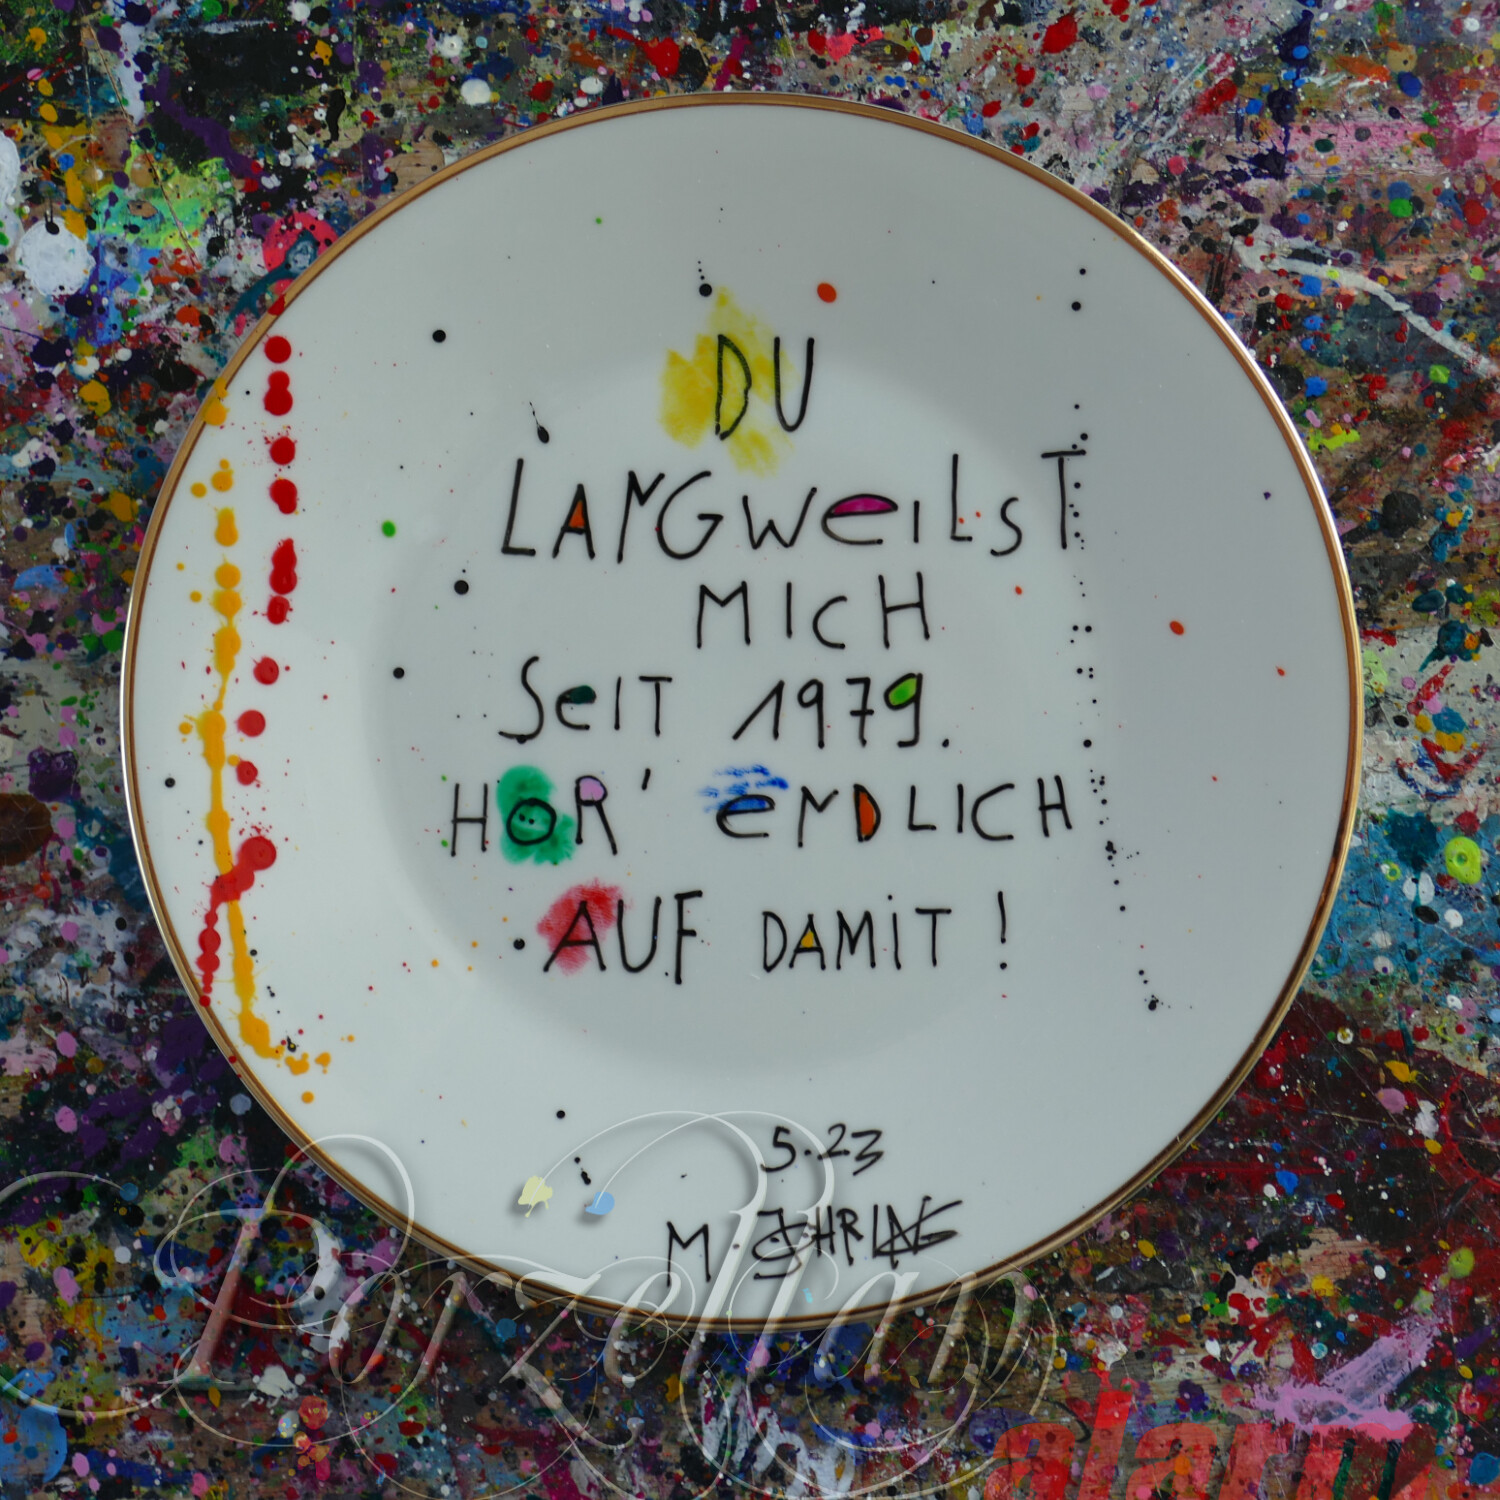 DU
LANGWEILST
MICH
SEIT 1979.
HOR' ENDLICH
AUF DAMIT !
5.23
M.
Porzellan
alarm